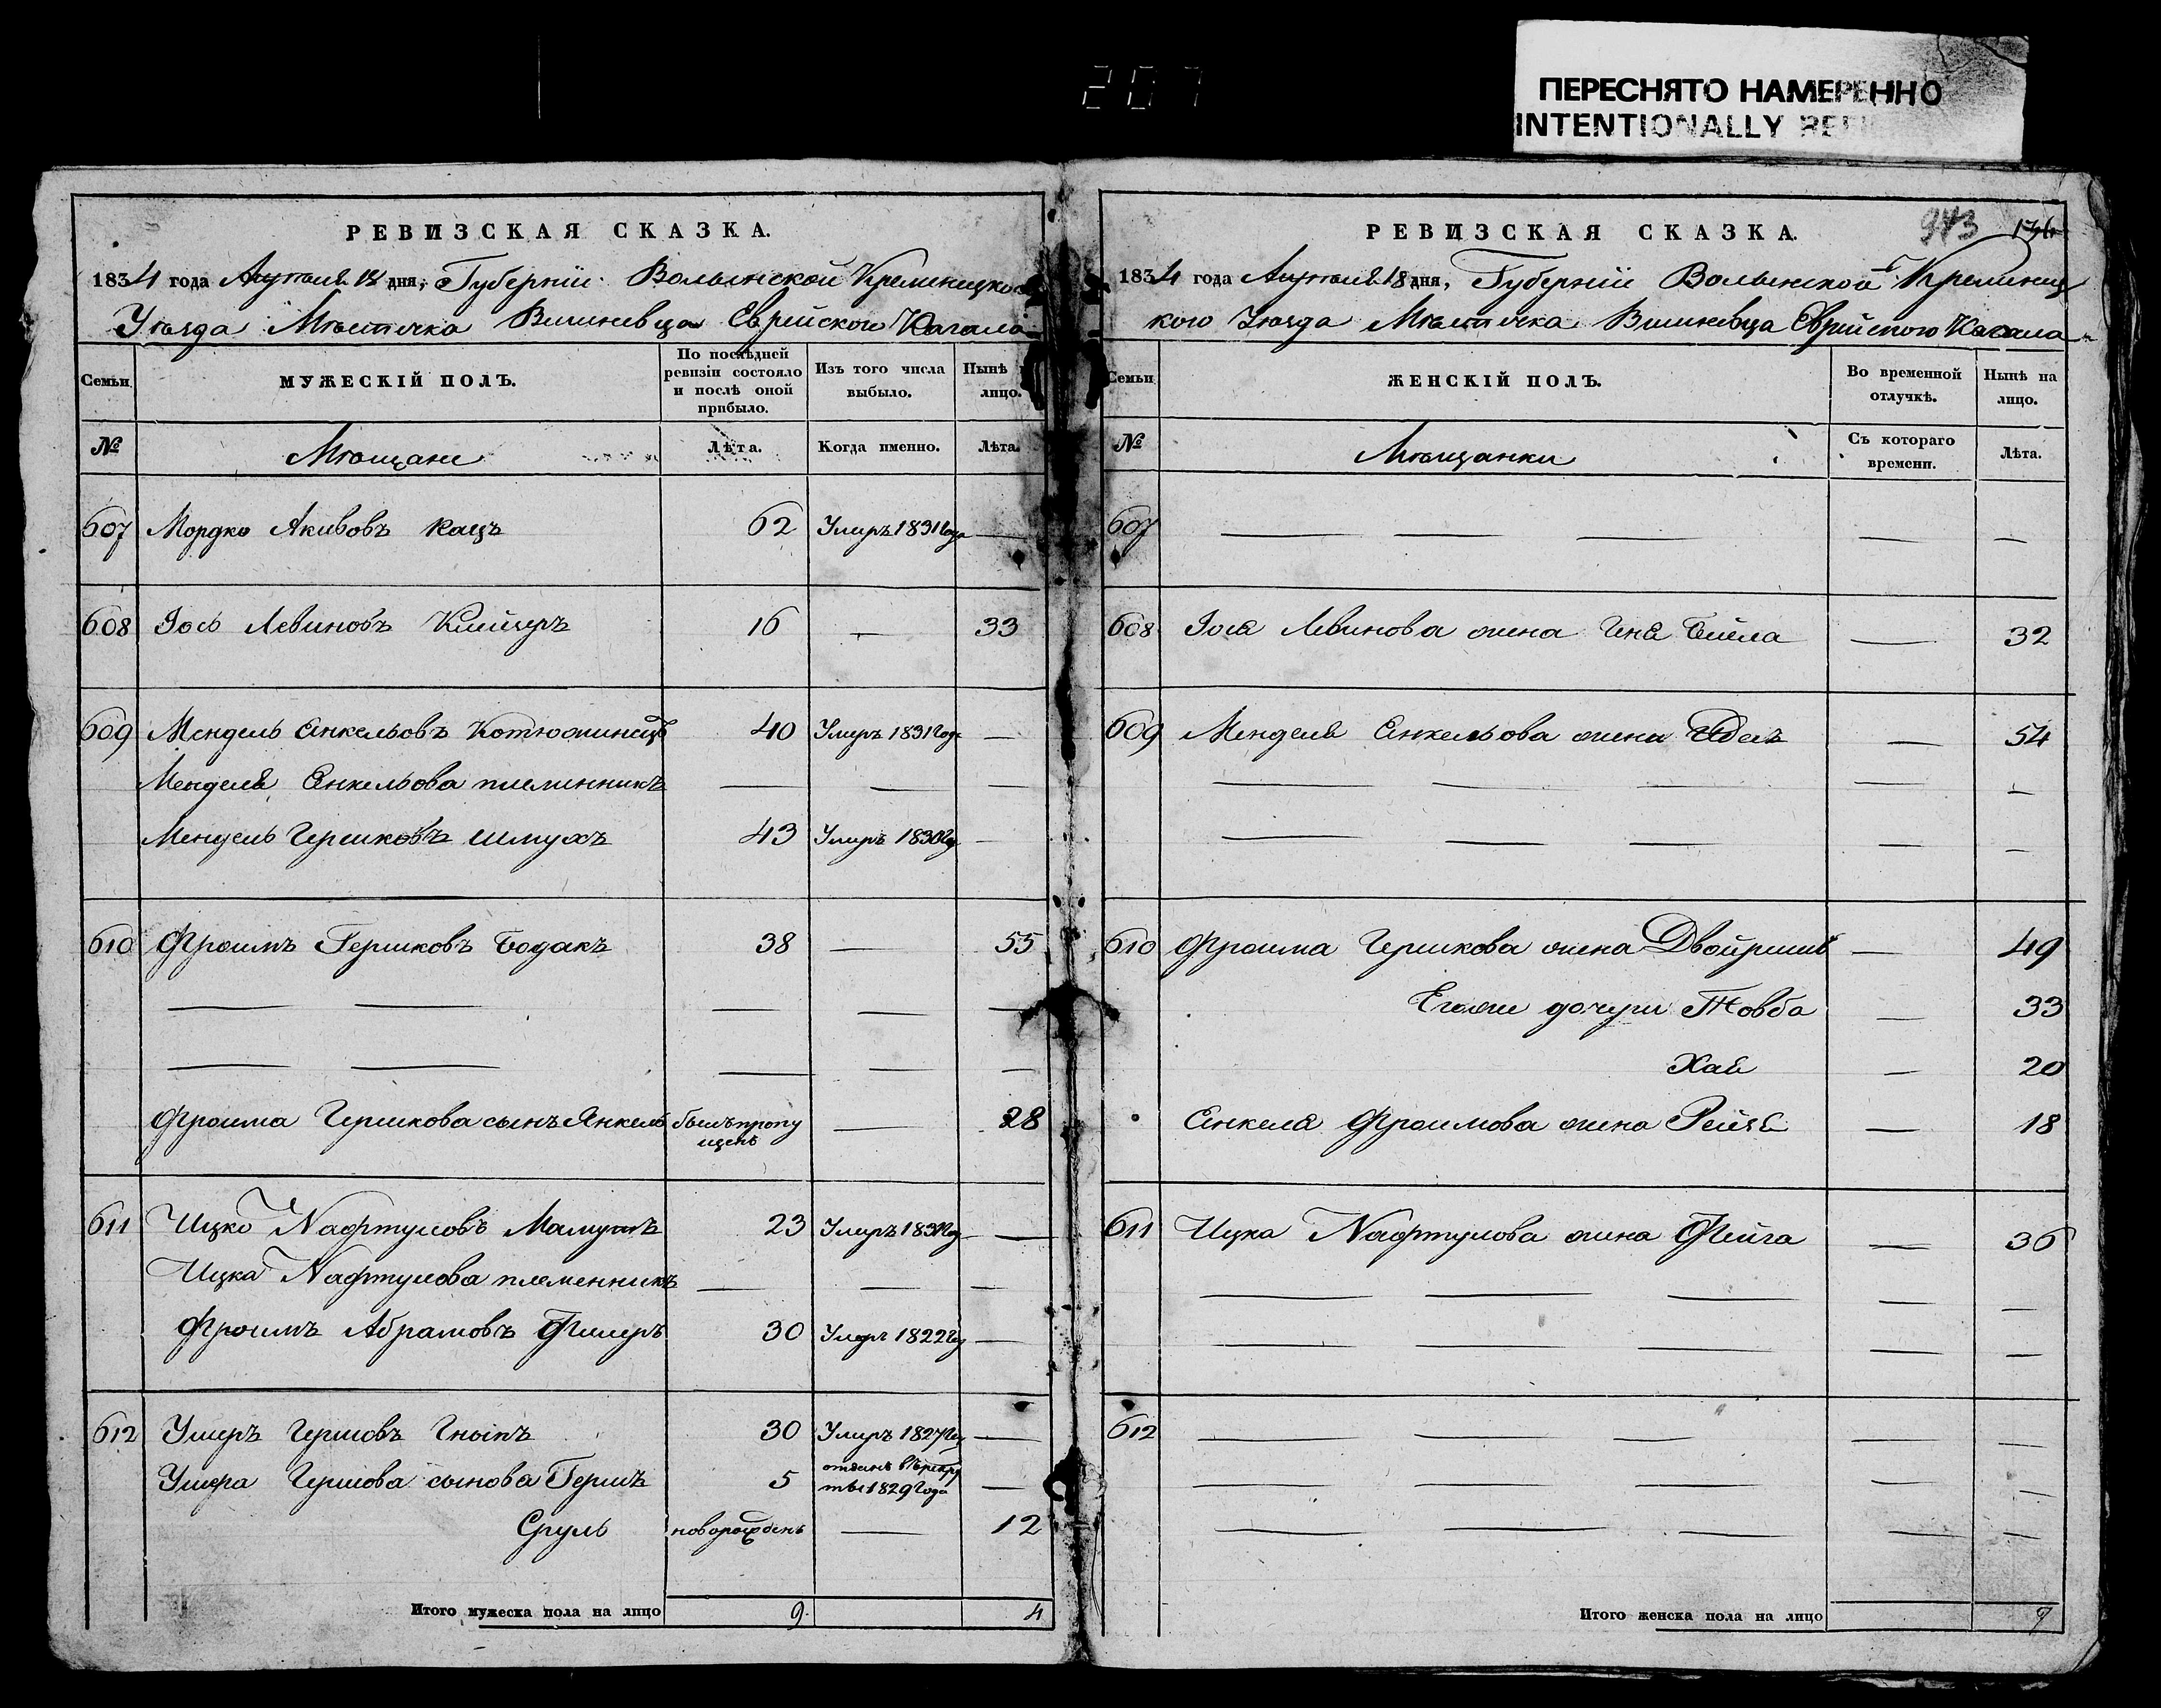 207
ПЕРЕСНЯТО НАМЕРЕННО
INTENTIONALLY
РЕВИЗСКАЯ СКАЗКА.
1834 года Апреля 18 дня, Губерніи Волынской Кременецкого
Уѣзда Мѣстечка Вишневца Еврейского Кагала
Семьи
МУЖЕСКІЙ ПОЛЪ.
По послѣдней ревизіи состояло и послѣ оной прибыло.
Изъ того числа выбыло.
Нынѣ лицо.
№
Мѣщане
Лѣта.
Когда именно.
Лѣта.
607 Мордко Акивовъ Кацъ 62 Умеръ 1831 года —
608 Іось Левиновъ 16 — 33
609 Мендель Енкельовъ 40 Умеръ 1831 год —
Менделя Енкельова племинникъ — — —
Мендель Гершковъ Шмухъ 43 Умеръ 1830 год —
610 Фроимъ Гершковъ Бодакъ 38 — 55
— — — — —
— — — — —
Фроима Гершкова сынъ Янкель былъ пропу
щенъ — 28
611 Ицко Нафтуловъ 23 Умеръ 1831 год —
Ицка Нафтулова племенникъ — — —
Фроимъ Абрамовъ Фишеръ 30 Умеръ 1822 год —
612 Ушеръ Гершовъ 30 Умеръ 1827 год —
Ушера Гершова сынова Гершъ 5 отданъ въ рекру
тъ 1829 года —
Сруль новорожденъ — 12
Итого мужеска пола на лицо 9. 4
943 176
РЕВИЗСКАЯ СКАЗКА.
1834 года Апреля 18 дня, Губерніи Волынской Кременец
кого Уѣзда Мѣстечка Вишневца Еврейского Кагала
Семьи
ЖЕНСКІЙ ПОЛЪ.
Во временной отлучкѣ.
Нынѣ на лицо.
№
Мѣщанки
Съ котораго времени.
Лѣта.
607 — — — — —
608 Іося Левинова жена Бейла — 32
609 Менделя Енкельова жена — 54
— — — — —
— — — — —
610 Фроима Гершкова жена Двойра — 49
Егоже дочери Товба — 33
Хая — 20
Енкеля Фроимова жена Рейзя — 18
611 Ицка Нафтулова жена Фейга — 36
— — — — —
— — — — —
612 — — — — —
— — — — —
— — — — —
Итого женска пола на лицо 7